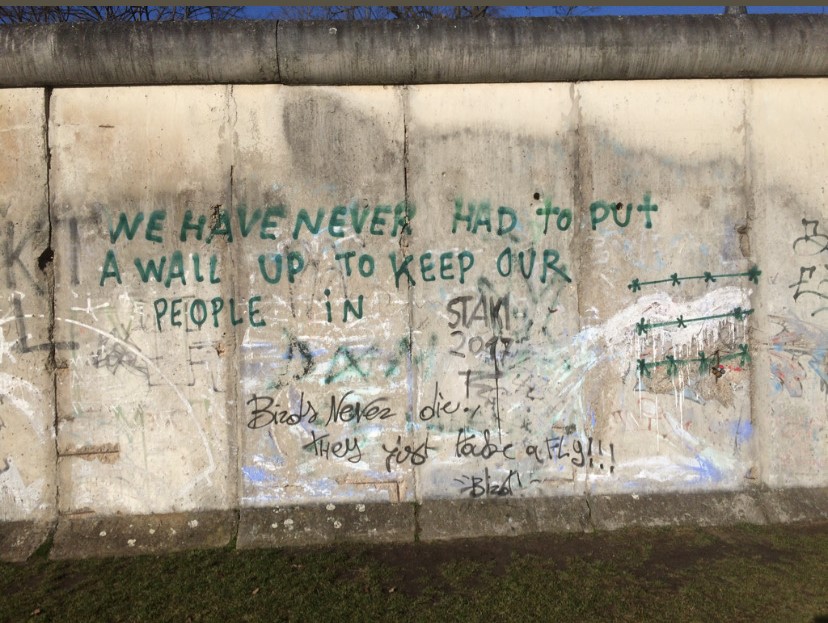 WE HAVE NEVER HAD to PUt
A WALL UP TO KEEP OUR
PEOPLE iN
STAN
2017
Birds Never die..
they just take a FLy!!!